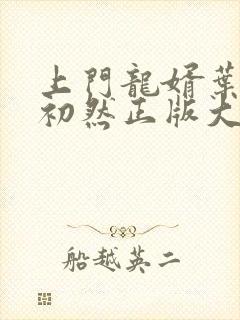 上門龍婿葉
初然正版大
船越英二